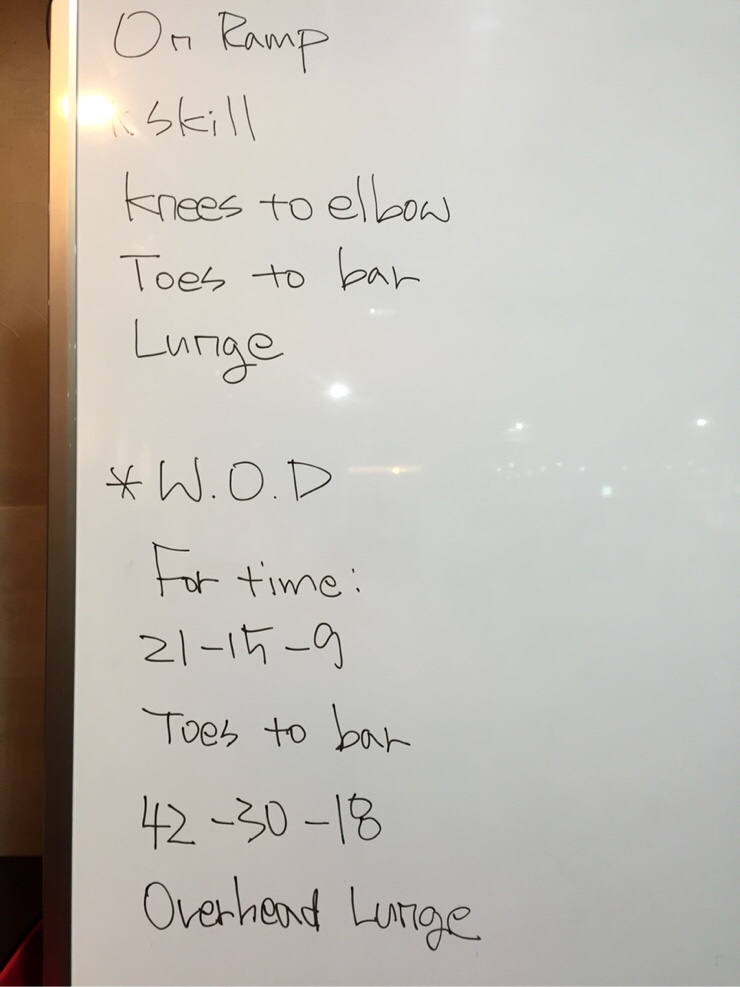 On Ramp
* Skill
Knees to elbow
Toes to bar
Lunge
* W.O.D
For time:
21-15-9
Toes to bar
42-30-18
Overhead Lunge